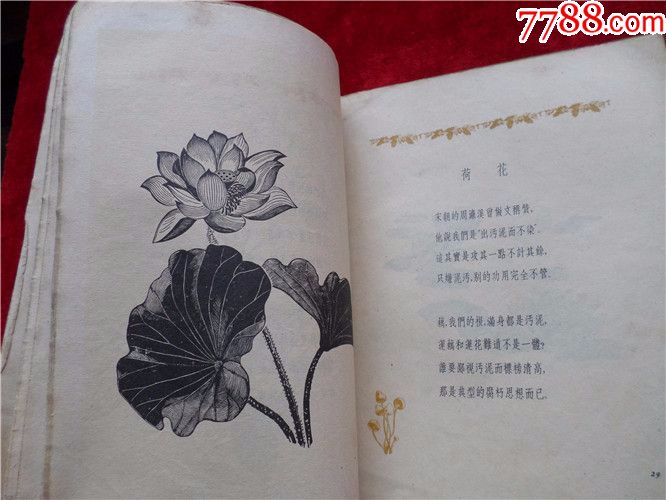 7788.com
荷花
宋朝的周濂溪曾做文稱贊,
他說我們是“出污泥而不染”.
這其實是攻其一點不計其餘,
只嫌泥污,别的功用完全不管.
藕,我們的根,滿身都是污泥,
蓮藕和蓮花難道不是一體?
誰要鄙視污泥而標榜清高,
那是典型的腐朽思想而已.
29